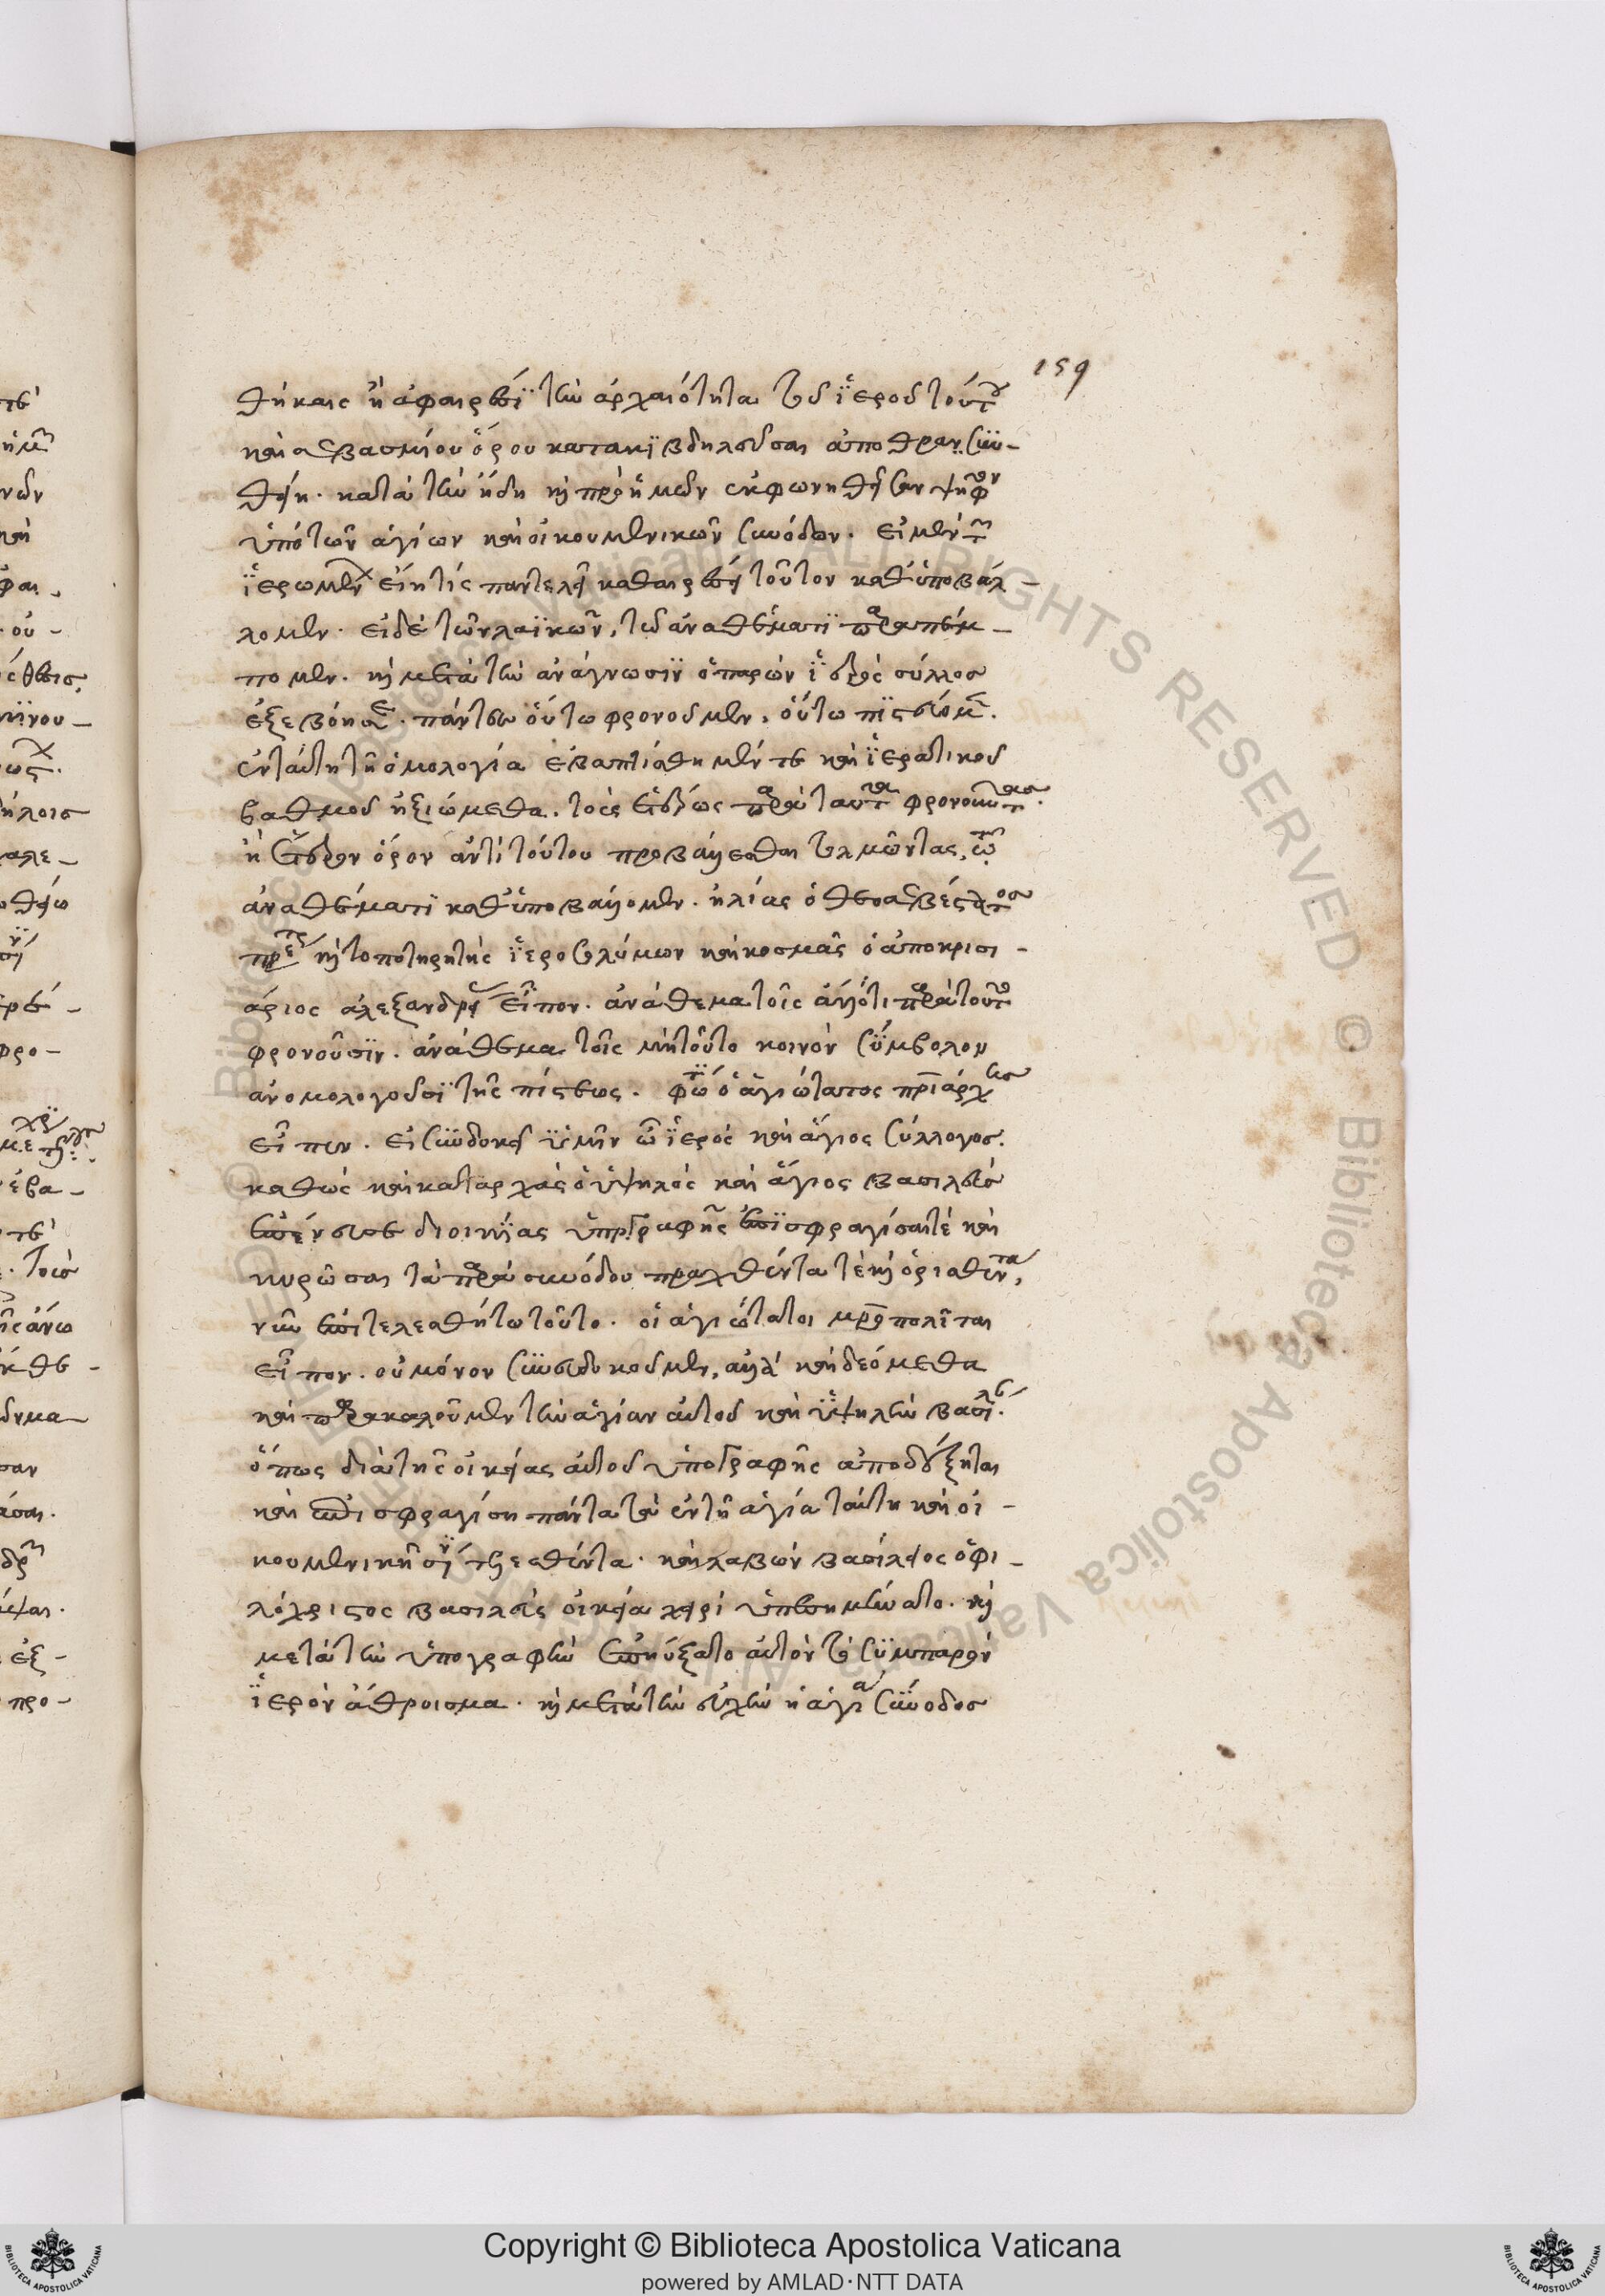 159
θήκαις ἢ ἀφαιρέσει τὴν ἀρχαιότητα τοῦ ἱεροῦ τούτου
καὶ σεβασμίου ὅρου κατακιβδηλεῦσαι ἀποθρασυν-
θείη. κατὰ τὴν ἤδη καὶ πρὸ ἡμῶν ἐκφωνηθεῖσαν ψῆφον
ὑπὸ τῶν ἁγίων καὶ οἰκουμενικῶν συνόδων. εἰ μὲν τῶν
ἱερωμένων εἴη τίς παντελεῖ καθαιρέσει τοῦτον καθυποβάλ-
λομεν. εἰ δὲ τῶν λαϊκῶν, τῶ ἀναθέματι παραπέμ-
πομεν. καὶ μετὰ τὴν ἀνάγνωσιν ὁ παρὼν ἱερὸς σύλλογος
ἐξεβόησε. πάντες οὕτω φρονοῦμεν, οὕτω πιστεύομεν.
ἐν ταύτη τῆ ὁμολογία ἐβαπτίσθημέν τε καὶ ἱερατικοῦ
βαθμοῦ ἠξιώμεθα. τοὺς ἑτέρως παρὰ ταῦτα φρονοῦντας.
ἢ ἕτερον ὅρον ἀντὶ τούτου προβάλλεσθαι τολμῶντας, τῶ
ἀναθέματι καθυποβάλλομεν. ἠλίας ὁ θεοσεβέστατος
πρεσβύτερος καὶ τοποτηρητὴς ἱεροσολύμων καὶ κοσμᾶς ὁ ἀποκρισι-
άριος ἀλεξανδρείας εἶπον. ἀνάθεμα τοῖς ἄλλό τι παρὰ τοῦτο
φρονοῦσιν. ἀνάθεμα τοῖς μὴ τοῦτο κοινὸν σύμβολον
ἀνομολογοῦσι τῆς πίστεως. φώτιος ὁ ἁγιώτατος πατριάρχης
εἶπεν. εἰ συνδοκεῖ ὑμῖν ὦ ἱερὸς καὶ ἅγιος σύλλογος.
καθὼς καὶ καταρχὰς ὁ ὑψηλὸς καὶ ἅγιος βασιλεὺς
ὑπογραφῆς ἐπισφραγίσαι τὲ καὶ
κυρῶσαι τὰ παρὰ συνόδου πραχθέντα τὲ καὶ ὁρισθέντα,
νῦν ἐπιτελεσθήτω τοῦτο. οἱ ἁγιώτατοι μητροπολῖται
εἶπον. οὐ μόνον συνευδοκοῦμεν, ἀλλὰ καὶ δεόμεθα
καὶ παρακαλοῦμεν τὴν ἁγίαν αὐτοῦ καὶ ὑψηλὴν βασιλείαν.
ὅπως διὰ τῆς οἰκείας αὐτοῦ ὑπογραφῆς ἀποδέξηται
καὶ ἐπισφραγίση πάντα τὰ ἐν τῆ ἁγία ταύτη καὶ οἰ-
κουμενικῆ συνόδω τελεσθέντα. καὶ λαβὼν βασίλειος ὁ φι-
λόχριστος βασιλεὺς οἰκεία χειρὶ ὑπεσημήνατο. καὶ
μετὰ τὴν ὑπογραφὴν ἐπηύξατο αὐτὸν τὸ συμπαρὸν
ἱερὸν ἄθροισμα. καὶ μετὰ τὴν εὐχὴν ἡ ἁγία σύνοδος
Copyright © Biblioteca Apostolica Vaticana
powered by AMLAD·NTT DATA